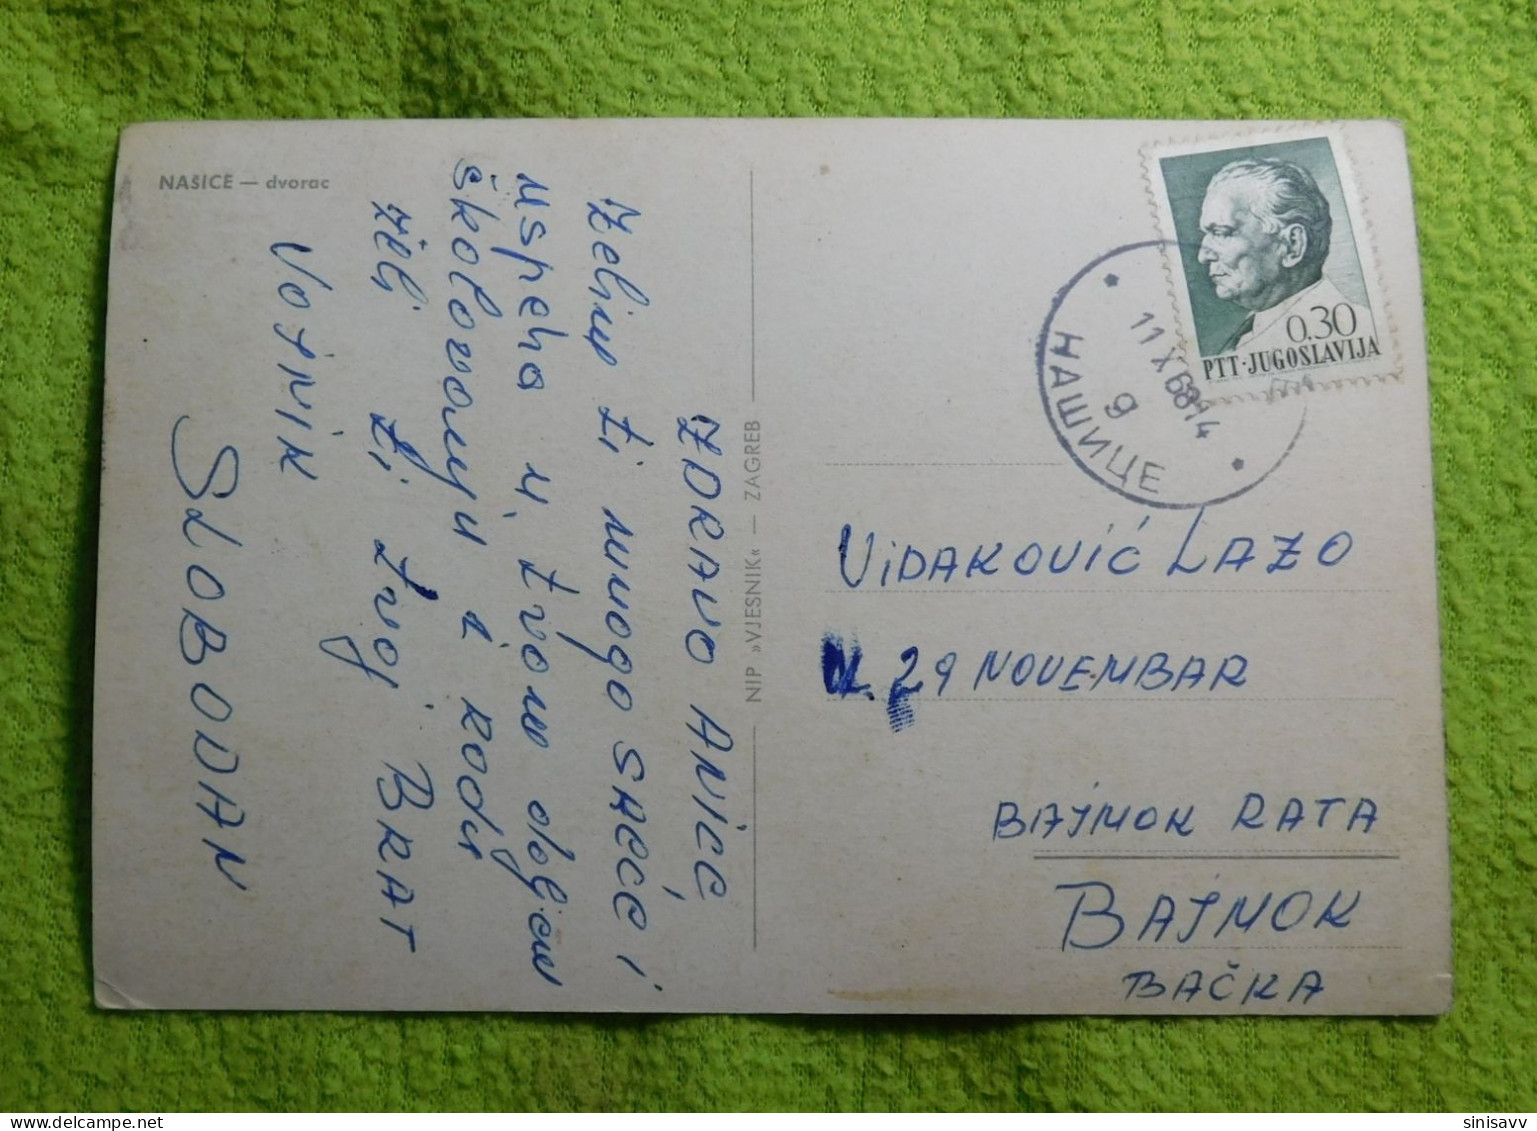 NAŠICE — dvorac
ZDRAVO ANICE
Želim ti mnogo SREĆE i
uspeha u tvom daljem
školovanju i radu
želi ti tvoj BRAT
VOJNIK
SLOBODAN
NIP »VJESNIK« — ZAGREB
0.30
PTT·JUGOSLAVIJA
НАШИЦЕ
11 X 68 14
9
ViDAKOVić LAZO
29 NOVEMBAR
BAJMOK RATA
BAJMOK
BAČKA
sinisavv